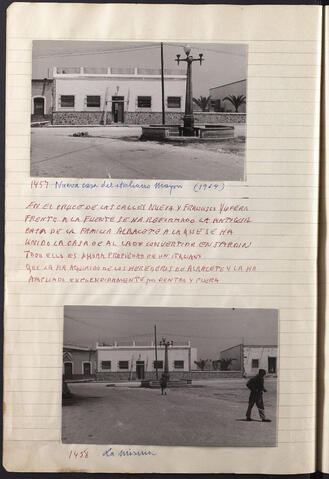 1457 Nueva casa del italiano Mayor (1964)
EN EL CRUCE DE LAS CALLES NUEVA Y FRANCISCO
FRENTE A LA FUENTE SE HA REFORMADO LA ANTIGUA
CASA DE LA FAMILIA ALBACETE A LA QUE SE HA
UNIDO LA CASA DE AL LADO CONVERTIDA EN JARDIN
TODO ELLO ES AHORA PROPIEDAD DE UN ITALIANO
QUE LA HA ADQUIRIDO DE LOS HEREDEROS DE ALBACETE Y LA HA
AMPLIADO EXPLENDIDAMENTE POR DENTRO Y FUERA
1458 La misma